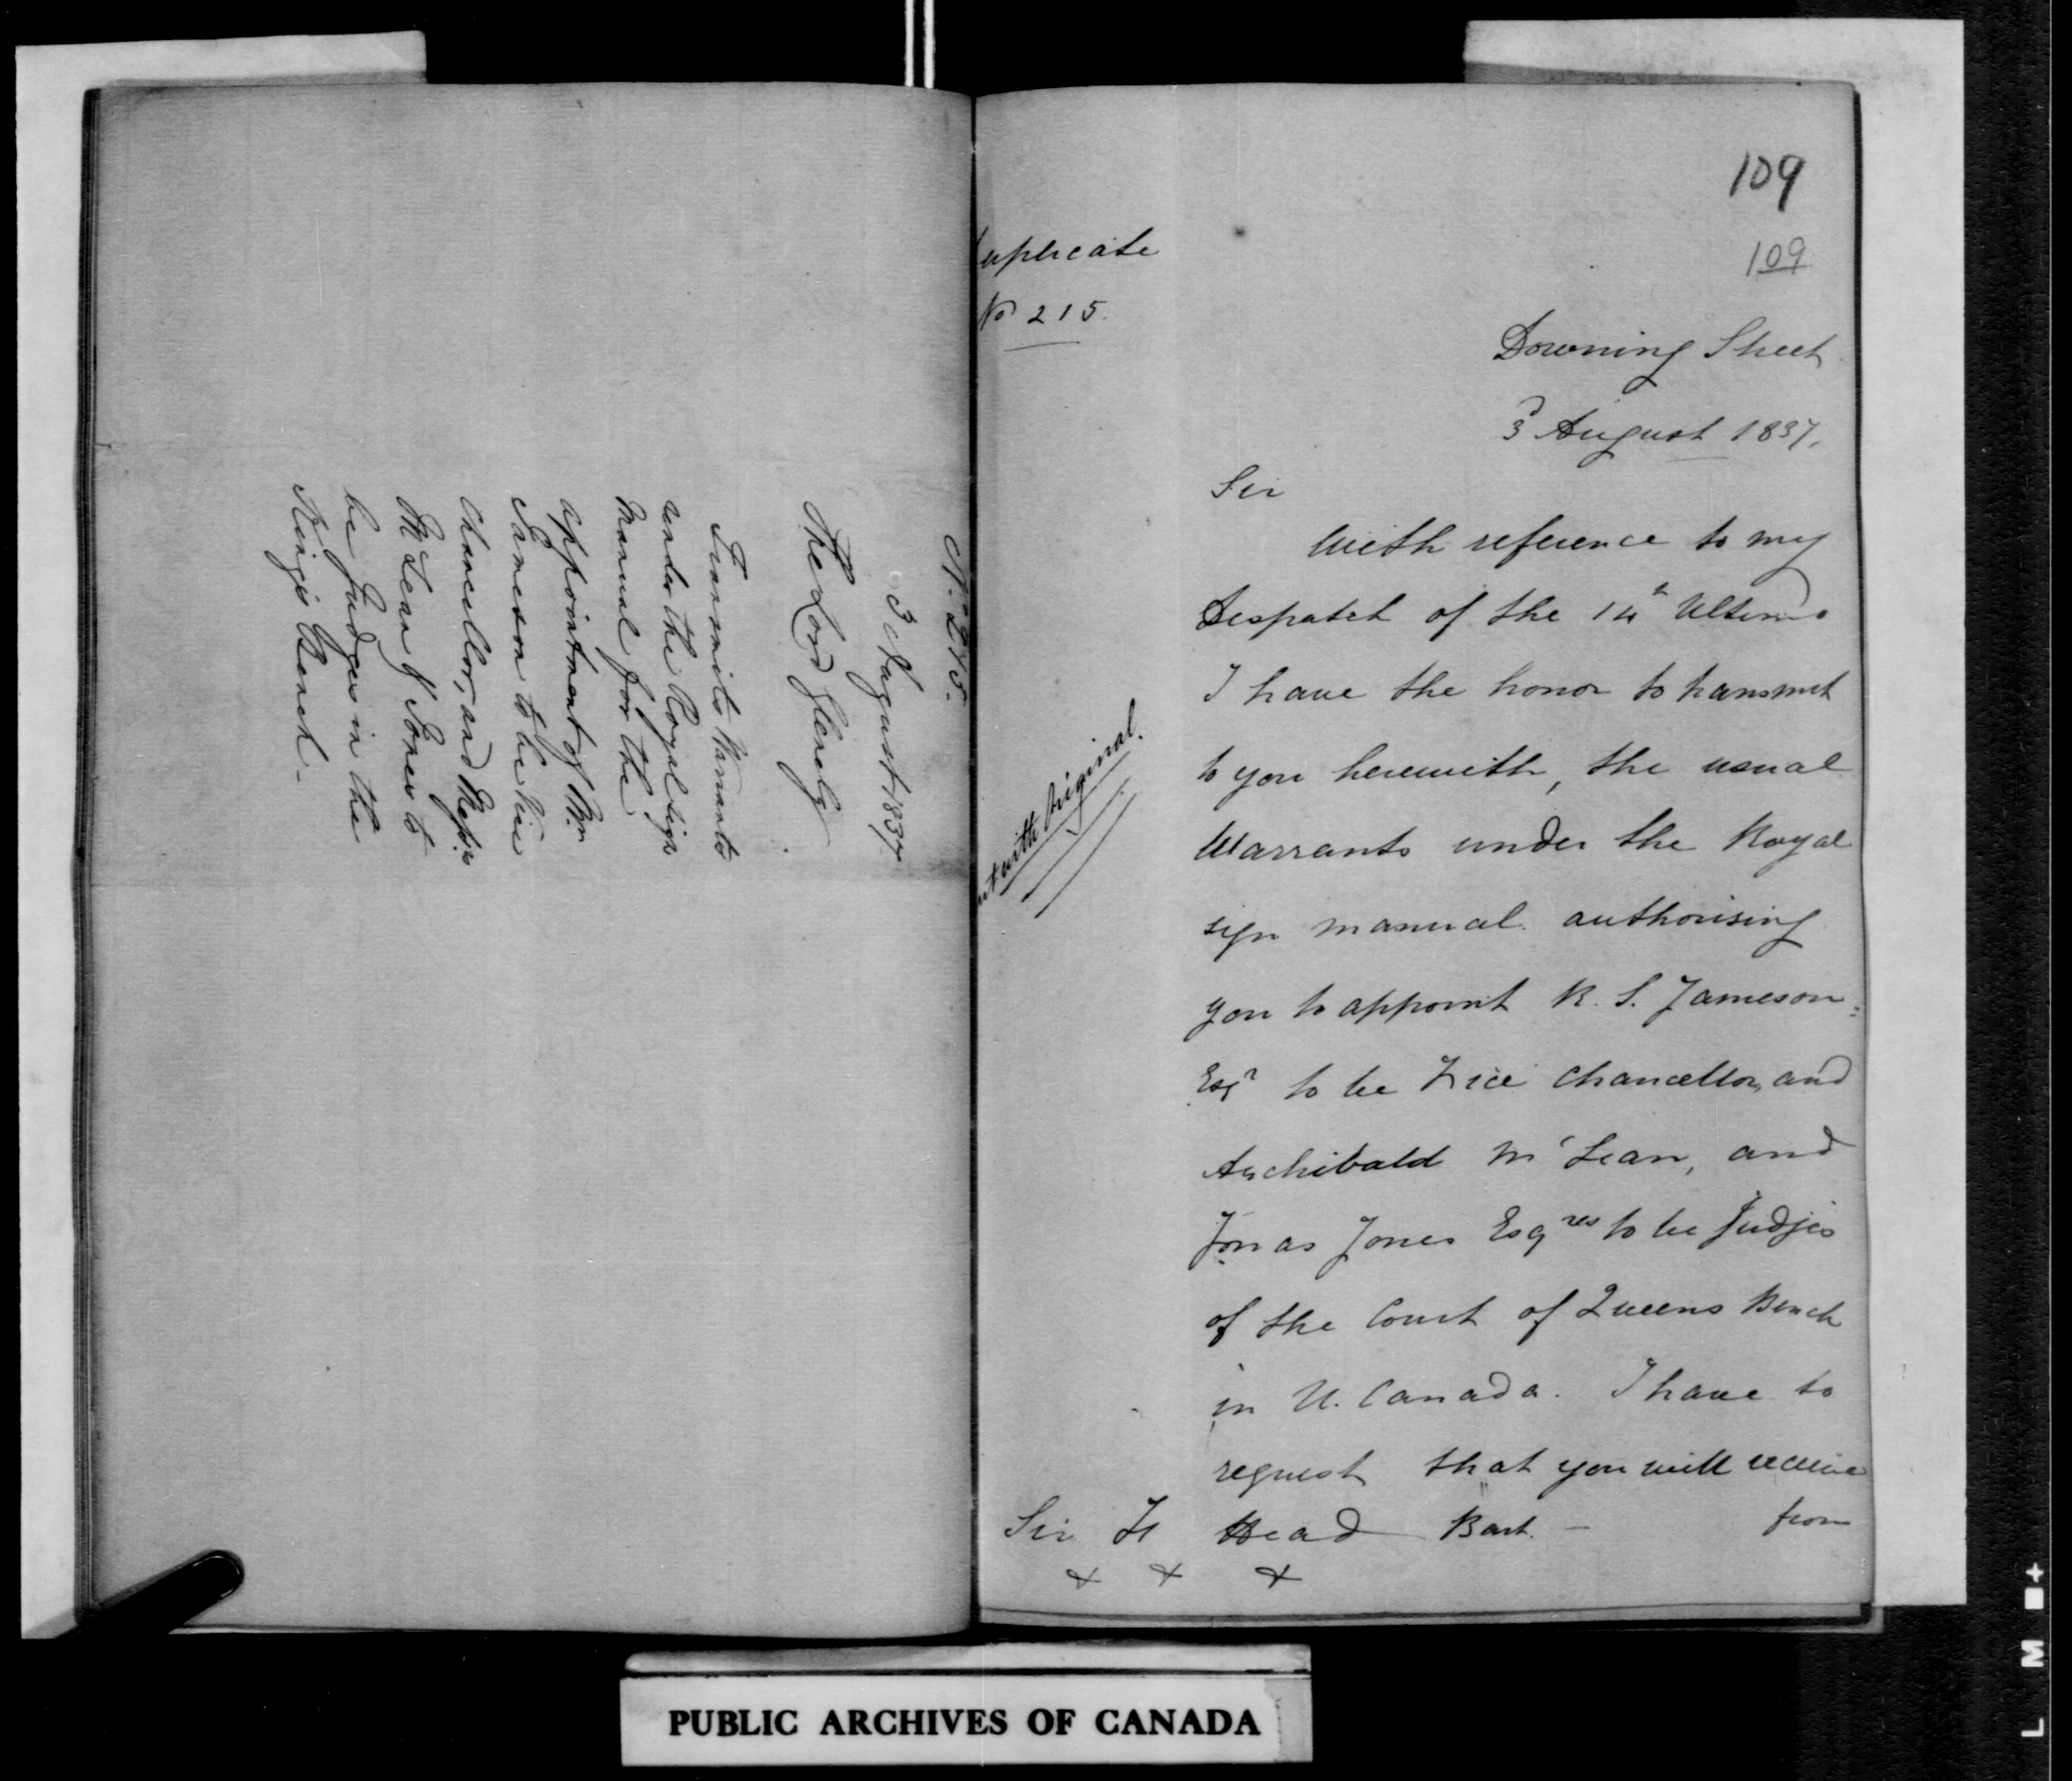 No 215.
3 August 1837
The Lord Glenelg
Transmits Warrants
under the Royal Sign
Manual for the
appointment of Mr.
Jameson to be Vice
Chancellor, and Messrs
McLean & Jones to
be Judges in the
Kings Bench.
109
109
uplicate
No 215.
Downing Street
3d August 1837.
Sir
With reference to my
Despatch of the 14th Ultimo
I have the honor to transmit
to you herewith, the usual
Warrants under the Royal
sign manual authorising
you to appoint R. S. Jameson
Esqr to be Vice Chancellor, and
Archibald McLean, and
Jonas Jones Esqres to be Judges
of the Court of Queens Bench
in U. Canada. I have to
request that you will receive
from
Sir F Head Bart.
& & &
with Original.
PUBLIC ARCHIVES OF CANADA
L M